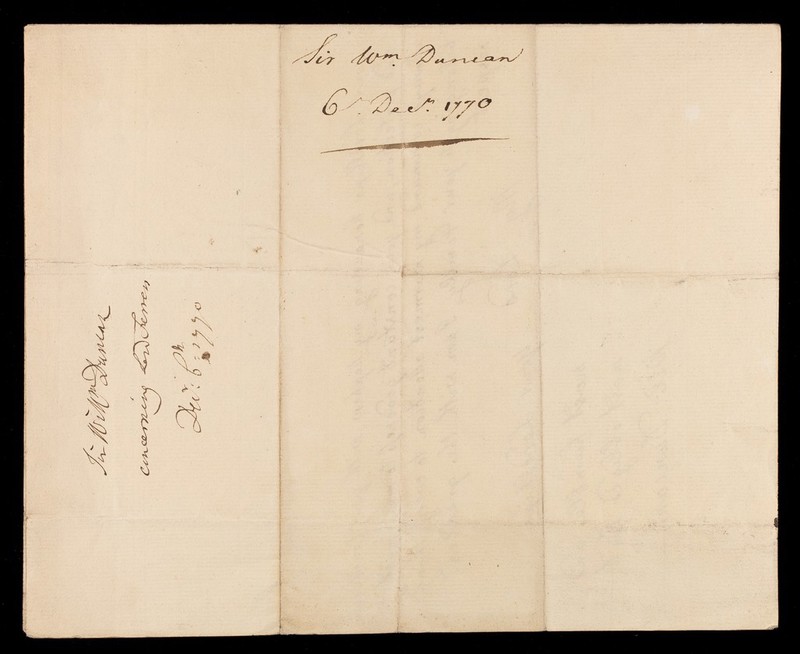 Sir Wm. Duncan
6th. Decr. 1770
Sir Wm Duncan
concerning Lord Ferrers
Decr: 6th: 1770